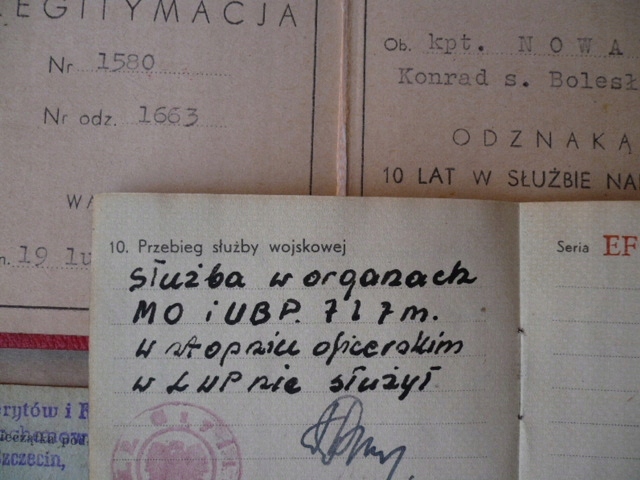 LEGITYMACJA
Nr 1580
Nr odz. 1663
19 lu
Ob. kpt. NOWA
Konrad s. Bolesł
ODZNAKĄ
10 LAT W SŁUŻBIE NA
10. Przebieg służby wojskowej
Służba w organach
MO i UBP. 7 l 7 m.
w stopniu oficerskim
w LWP nie służył
Seria EF
Szczecin,